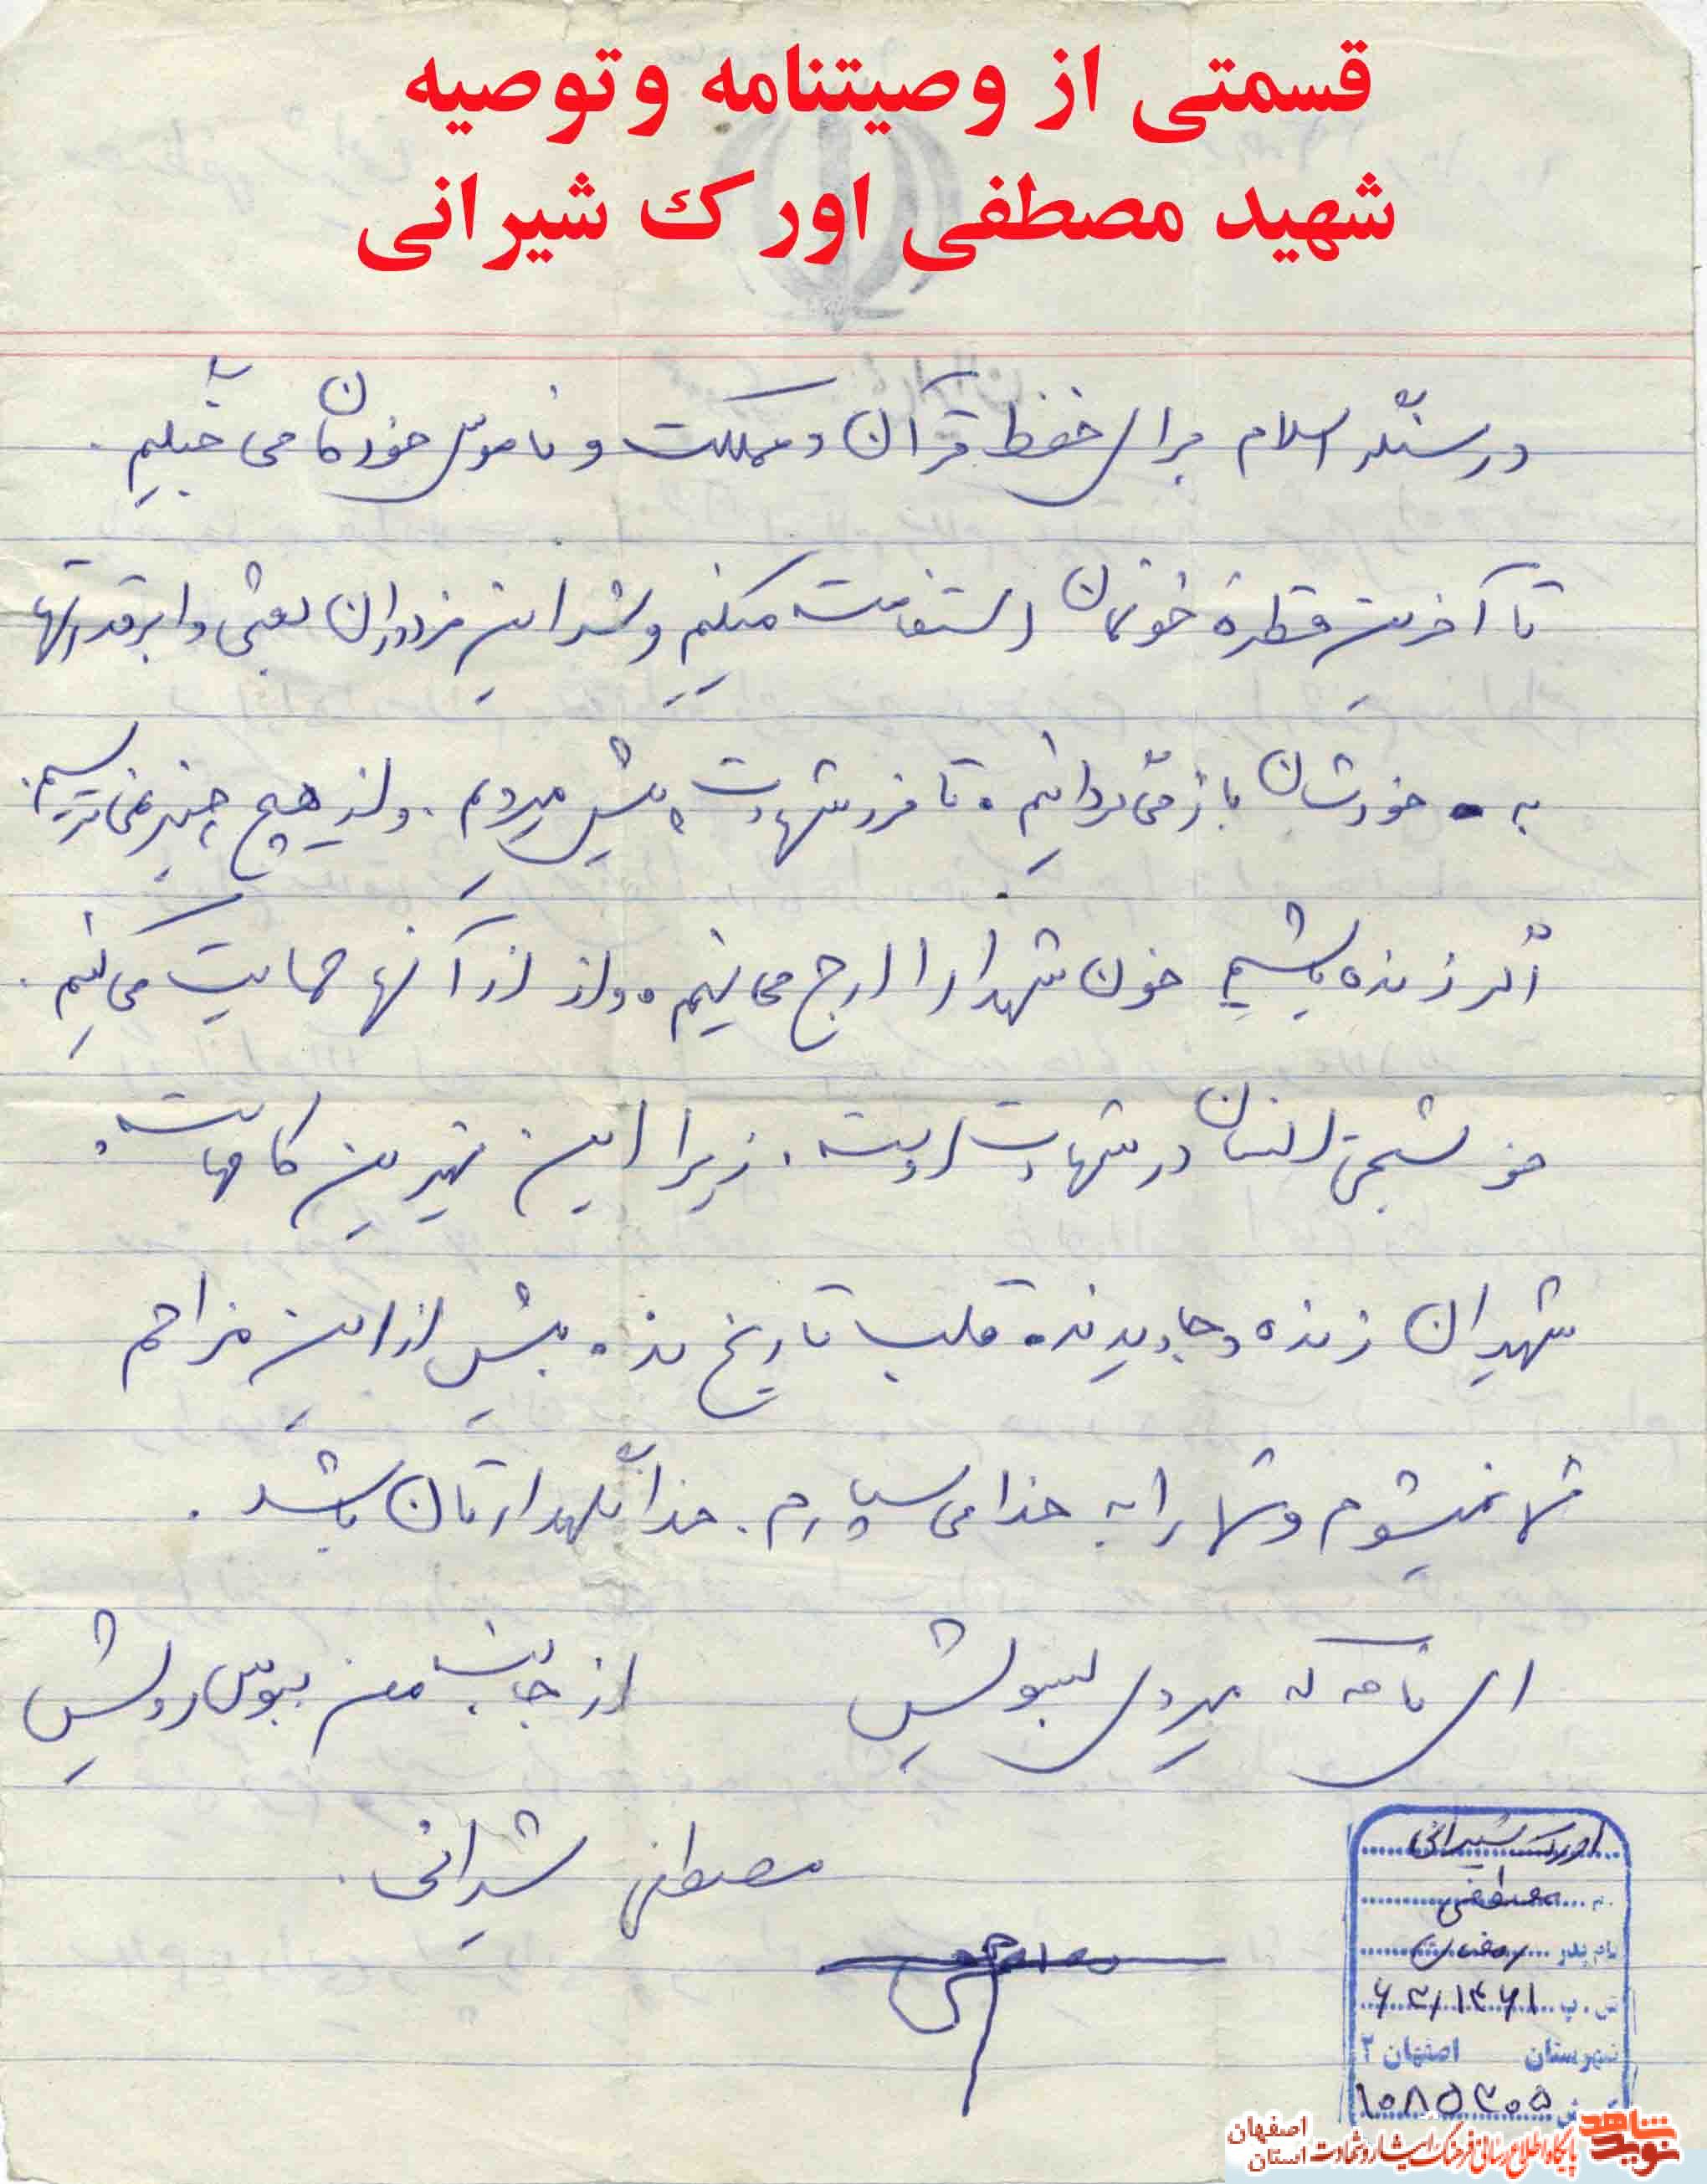 قسمتی از وصیتنامه وتوصیه
شهید مصطفی اورک شیرانی
در سنگر اسلام برای حفظ قرآن و مملکت و ناموس خودمان می جنگیم .
تا آخرین قطره خونمان استقامت میکنیم و شر این مزدوران بعثی و ابرقدرتها
به خودشان باز می گردانیم . تا مرز شهادت پیش میرویم . و از هیچ چیز نمی ترسیم .
اگر زنده باشیم خون شهدا را ارج می نهیم . و از از آنها حمایت می کنیم .
خوشبختی انسان در شهادت اوست . زیرا این بهترین کامهاست .
شهیدان زنده و جاویدند . قلب تاریخ . بیش از این مزاحم
شما نمیشوم و شما را به خدا می سپارم . خدا نگهدارتان باشد .
ای نامه که میروی بسویش از جانب من ببوس رویش
مصطفی شیرانی .
اورک شیرانی
مصطفی
نام پدر رمضان
ش . پ
شهرستان اصفهان ۲
نوید شاهد
پایگاه اطلاع رسانی فرهنگ ایثار و شهادت
استان اصفهان